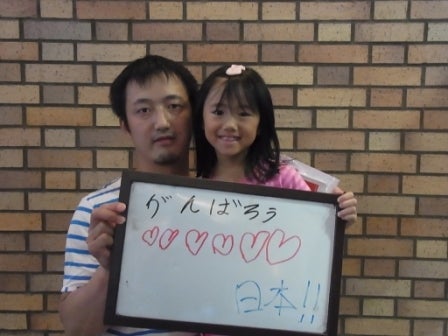 がんばろう
♡♡♡♡♡♡
日本!!